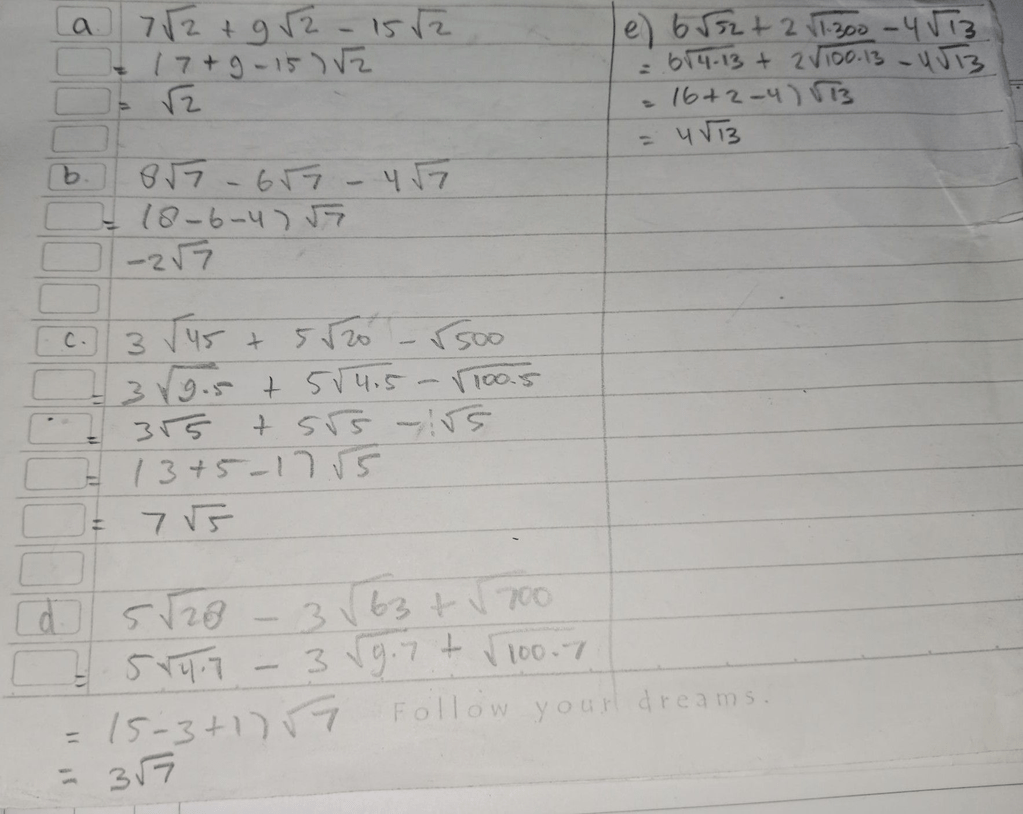 a. 7√2 + 9√2 - 15√2
= (7+9-15)√2
= √2
b. 8√7 - 6√7 - 4√7
= (8-6-4)√7
-2√7
c. 3√45 + 5√20 - √500
= 3√9.5 + 5√4.5 - √100.5
= 3√5 + 5√5 - 1√5
= (3+5-1)√5
= 7√5
d 5√28 - 3√63 + √700
= 5√4.7 - 3√9.7 + √100.7
= (5-3+1)√7
= 3√7
Follow your dreams.
e) 6√52 + 2√1.300 - 4√13
= 6√4.13 + 2√100.13 - 4√13
= (6+2-4)√13
= 4√13